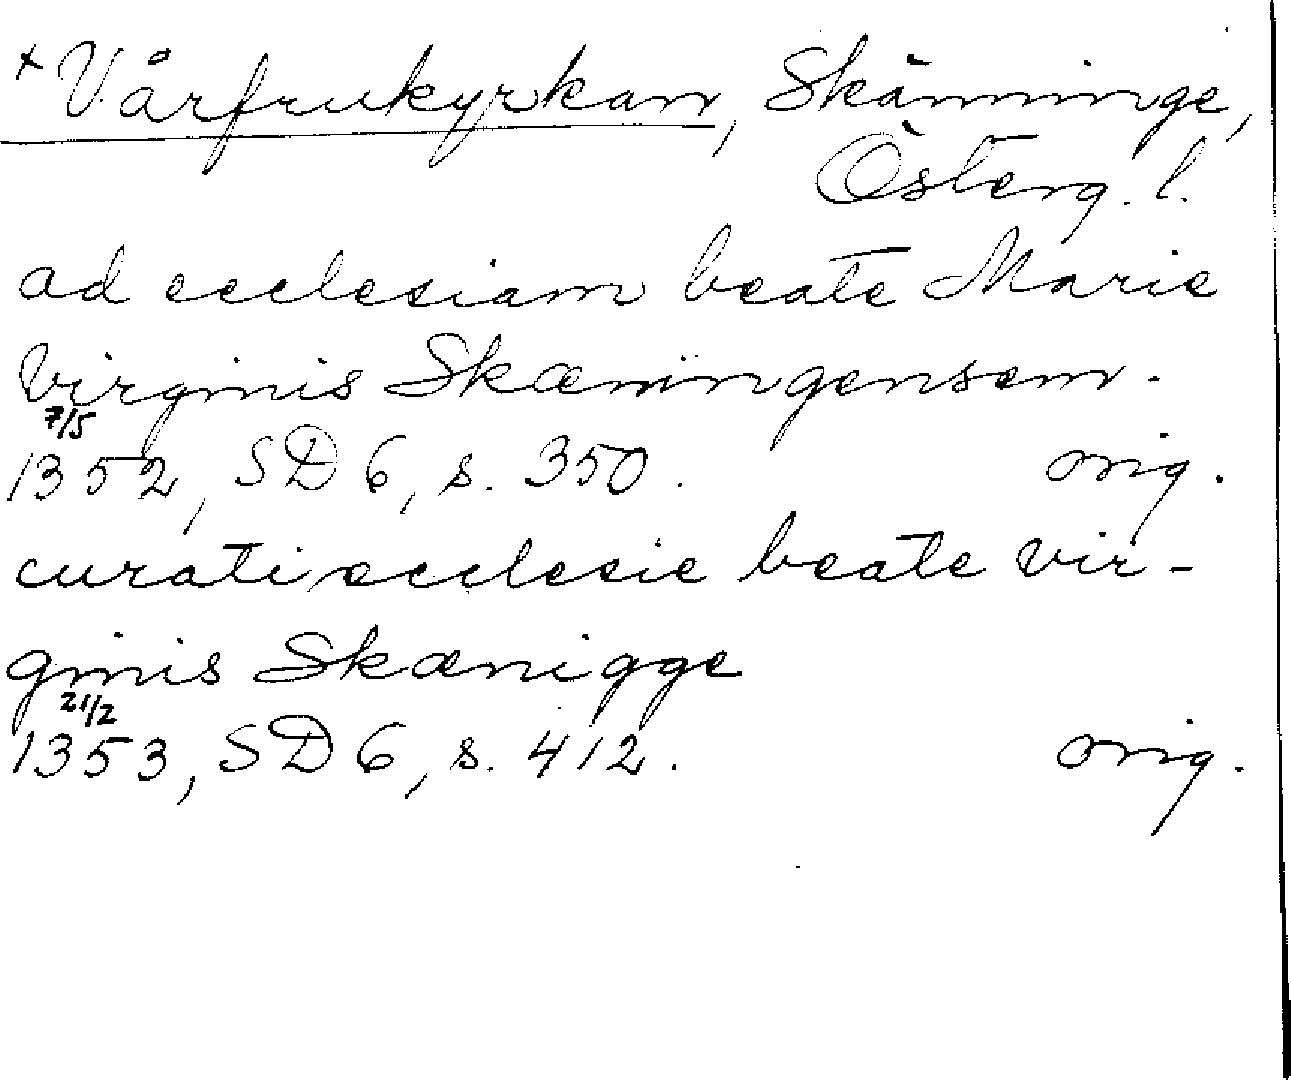 + Vårfrukyrkan, Skänninge,
Österg. l.
ad ecclesiam beate Marie
virginis Skæningensem.
7/5
1352, SD 6, s. 350. orig.
curati ecclesie beate vir-
ginis Skænigge
21/2
1353, SD 6, s. 412. orig.